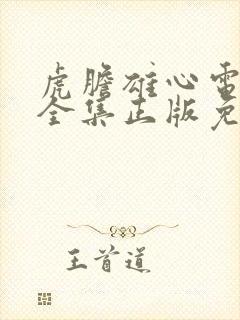 虎胆雄心电
全集正版免
王首道